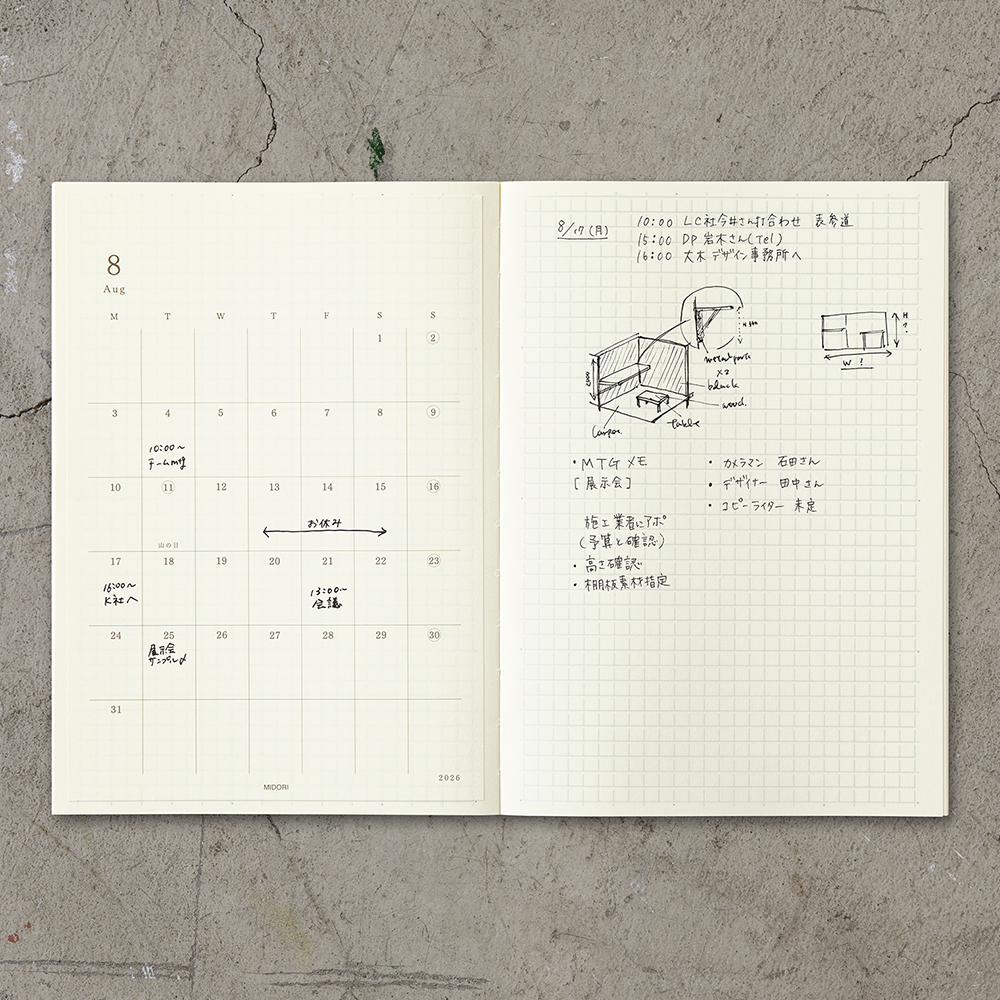 8
Aug
M T W T F S S
1 2
3 4 5 6 7 8 9
10:00～
チームmtg
10 11 12 13 14 15 16
お休み
山の日
17 18 19 20 21 22 23
16:00～
K社へ
13:00～
会議
24 25 26 27 28 29 30
展示会
サンプル〆
31
2026
MIDORI
8/17(月)
10:00 LC社今井さん打合わせ 表参道
15:00 DP 岩木さん(Tel)
16:00 大木デザイン事務所へ
metal
×2
black
wood.
table
H
?
W ?
・MTG メモ
[展示会]
施工業者にアポ
(予算と確認)
・高さ確認
・棚板素材指定
・カメラマン 石田さん
・デザイナー 田中さん
・コピーライター 未定